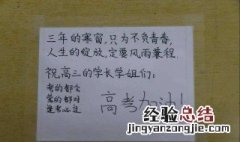 三年的寒窗,只为不负青春,
人生的绽放,定要风雨兼程.
祝高三的学长学姐们:
考的都会
蒙的都对
逢考必过
高考加油!
经验总结
jingyanzongjie.com